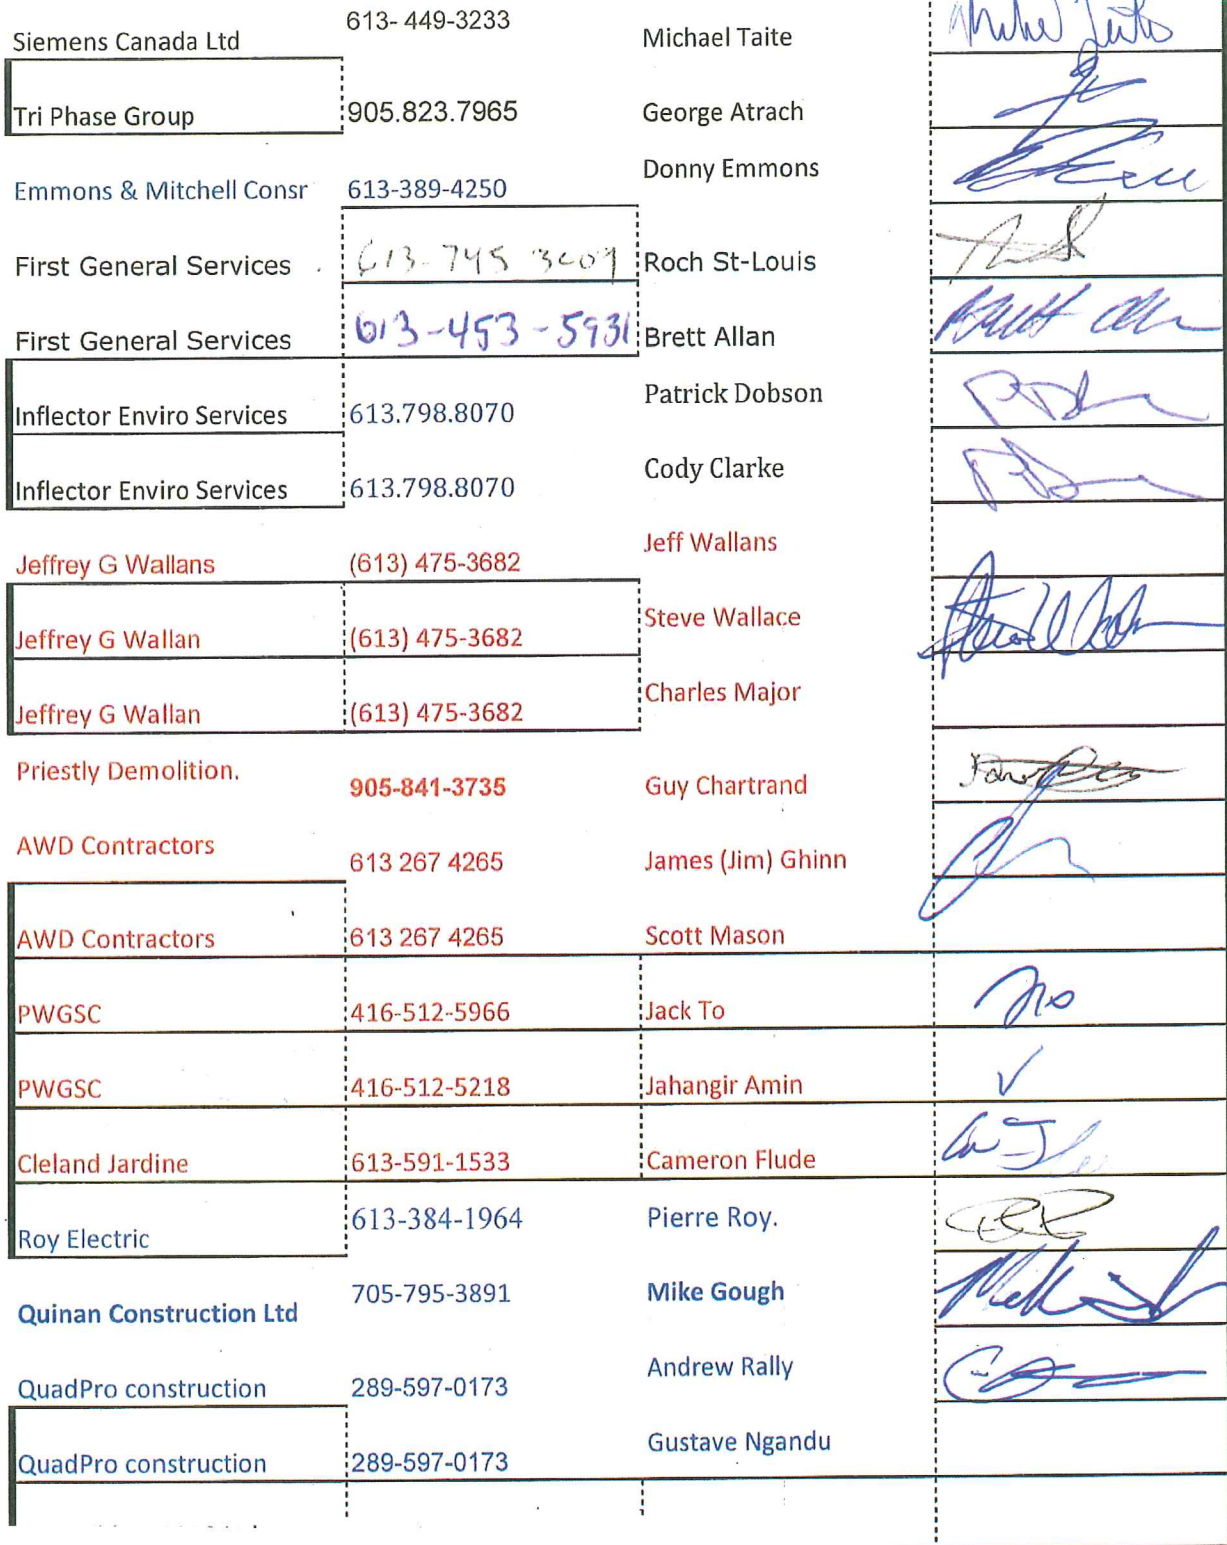 Siemens Canada Ltd 613- 449-3233 Michael Taite
Tri Phase Group 905.823.7965 George Atrach
Emmons & Mitchell Consr 613-389-4250 Donny Emmons
First General Services 613-745 Roch St-Louis
First General Services 613-453-5931 Brett Allan
Inflector Enviro Services 613.798.8070 Patrick Dobson
Inflector Enviro Services 613.798.8070 Cody Clarke
Jeffrey G Wallans (613) 475-3682 Jeff Wallans
Jeffrey G Wallan (613) 475-3682 Steve Wallace
Jeffrey G Wallan (613) 475-3682 Charles Major
Priestly Demolition. 905-841-3735 Guy Chartrand
AWD Contractors 613 267 4265 James (Jim) Ghinn
AWD Contractors 613 267 4265 Scott Mason
PWGSC 416-512-5966 Jack To
PWGSC 416-512-5218 Jahangir Amin
Cleland Jardine 613-591-1533 Cameron Flude
Roy Electric 613-384-1964 Pierre Roy.
Quinan Construction Ltd 705-795-3891 Mike Gough
QuadPro construction 289-597-0173 Andrew Rally
QuadPro construction 289-597-0173 Gustave Ngandu